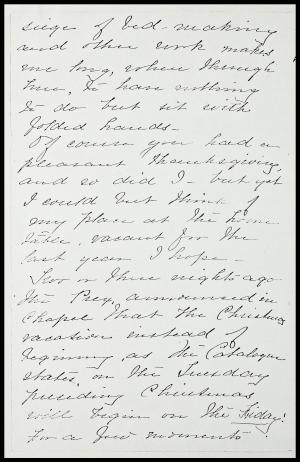 siege of bed-making
and other work makes
me long, when through
here, to have nothing
to do but sit with
folded hands-
Of course you had a
pleasant Thanksgiving,
and so did I - but yet
I could but think of
my place at the home
table, vacant for the
last year I hope-
Two or three nights ago
the Prex. announced in
Chapel that the Christmas
vacation instead of
beginning, as the Catalogue
states, on the Tuesday
preceding Christmas
will begin on the Friday!
For a few moments